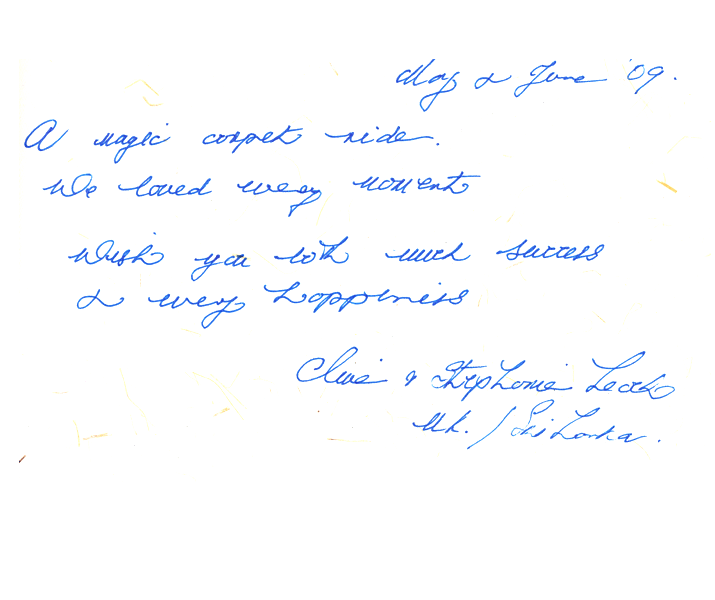 May & June '09.
A magic carpet ride.
We loved every moment
Wish you both much success
& every happiness
Clive & Stephanie
UK. / Sri Lanka.